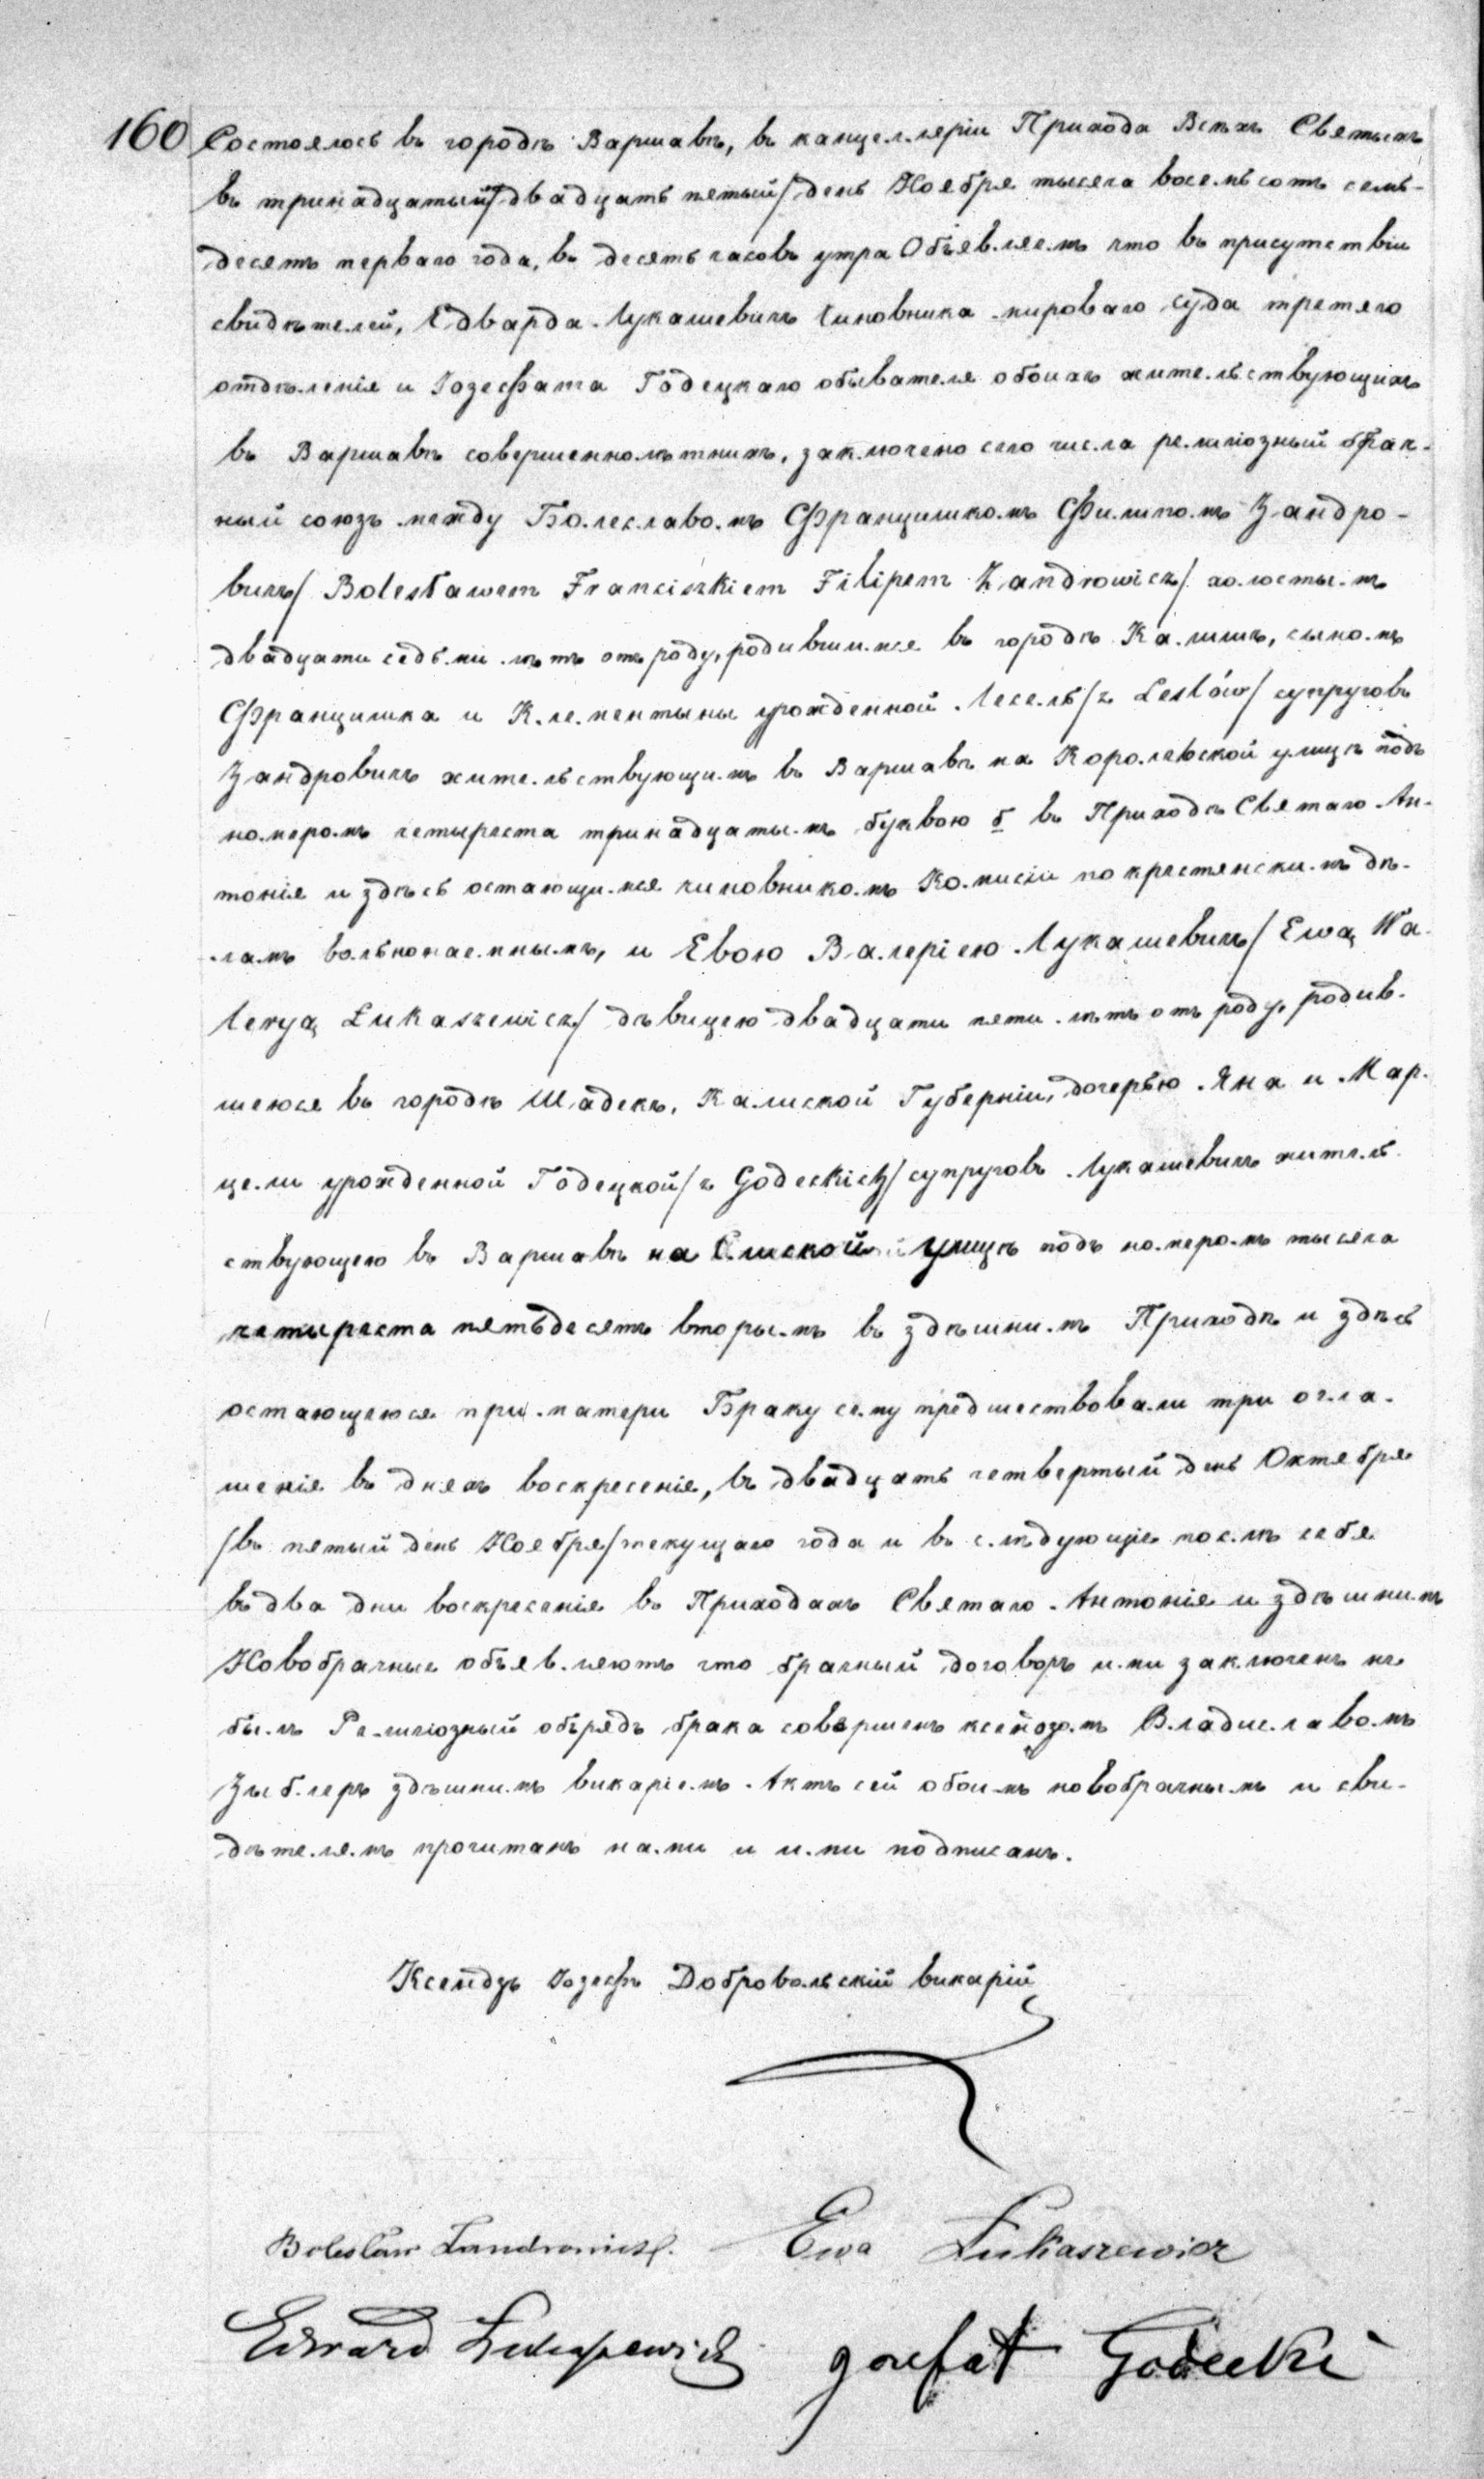 160 Состоялось въ городѣ Варшавѣ, въ канцелляріи Прихода Всѣхъ Святыхъ
въ тринадцатый/двадцать пятый/ день Ноября тысяча восемьсотъ семь-
десятъ перваго года, въ десять часовъ утра Объявляемъ что въ присутствіи
свидѣтелей, Едварда Лукашевичъ Чиновника мироваго суда третяго
отдѣленія и Іозефата Годецкаго обывателя обоихъ жительствующихъ
въ Варшавѣ совершеннолѣтнихъ, заключено сего числа религіозный брач-
ный союзъ между Болеславомъ Францишкомъ Филипомъ Зандро-
вичъ/ Bolesławem Franciszkiem Filipem Zandrowicz/ холостымъ
двадцати седьми лѣтъ отъ роду, родившимся въ городѣ Калишѣ, сыномъ
Францишка и Клементыны урожденной Лесель/z Leslów/ супруговъ
Зандровичъ жительствующимъ въ Варшавѣ на Королевской улицѣ подъ
номеромъ четыреста тринадцатымъ буквою б въ Приходѣ Святаго Ан-
тонія и здѣсь остающимся чиновникомъ Комисіи по крестянскимъ дѣ-
ламъ вольнонаемнымъ, и Евою Валеріею Лукашевичъ/ Ewą Wa-
leryą Łukaszewicz/ дѣвицею двадцати пяти лѣтъ отъ роду, родив-
шеюся въ городѣ Шадекъ, Калиской Губерніи, дочерью Яна и Мар-
цели урожденной Годецкой/z Godeckich/ супруговъ Лукашевичъ житель-
ствующею въ Варшавѣ на Слиской улицѣ подъ номеромъ тысяча
четыреста пятьдесятъ вторымъ въ здѣшнимъ Приходѣ и здѣсь
остающеюся при матери Браку сему предшествовали три огла-
шенія въ дняхъ воскресенія, въ двадцать четвертый день Октября
/въ пятый день Ноября/ текущаго года и въ слѣдующіе послѣ себя
въ два дни воскресенія въ Приходахъ Святаго Антонія и здѣшнимъ
Новобрачные объявляютъ что брачный договоръ ими заключенъ не
былъ Религіозный обърядъ брака совершенъ ксендзомъ Владиславомъ
Зыблеръ здѣшнимъ викаріемъ. Актъ сей обоимъ новобрачнымъ и сви-
дѣтелямъ прочитанъ нами и ими подписанъ.
Ксендзъ Іозефъ Добровольскій викарій
Bolesław Zandrowicz. Ewa Łukaszewicz
Edward Łukaszewicz Jozefat Godecki